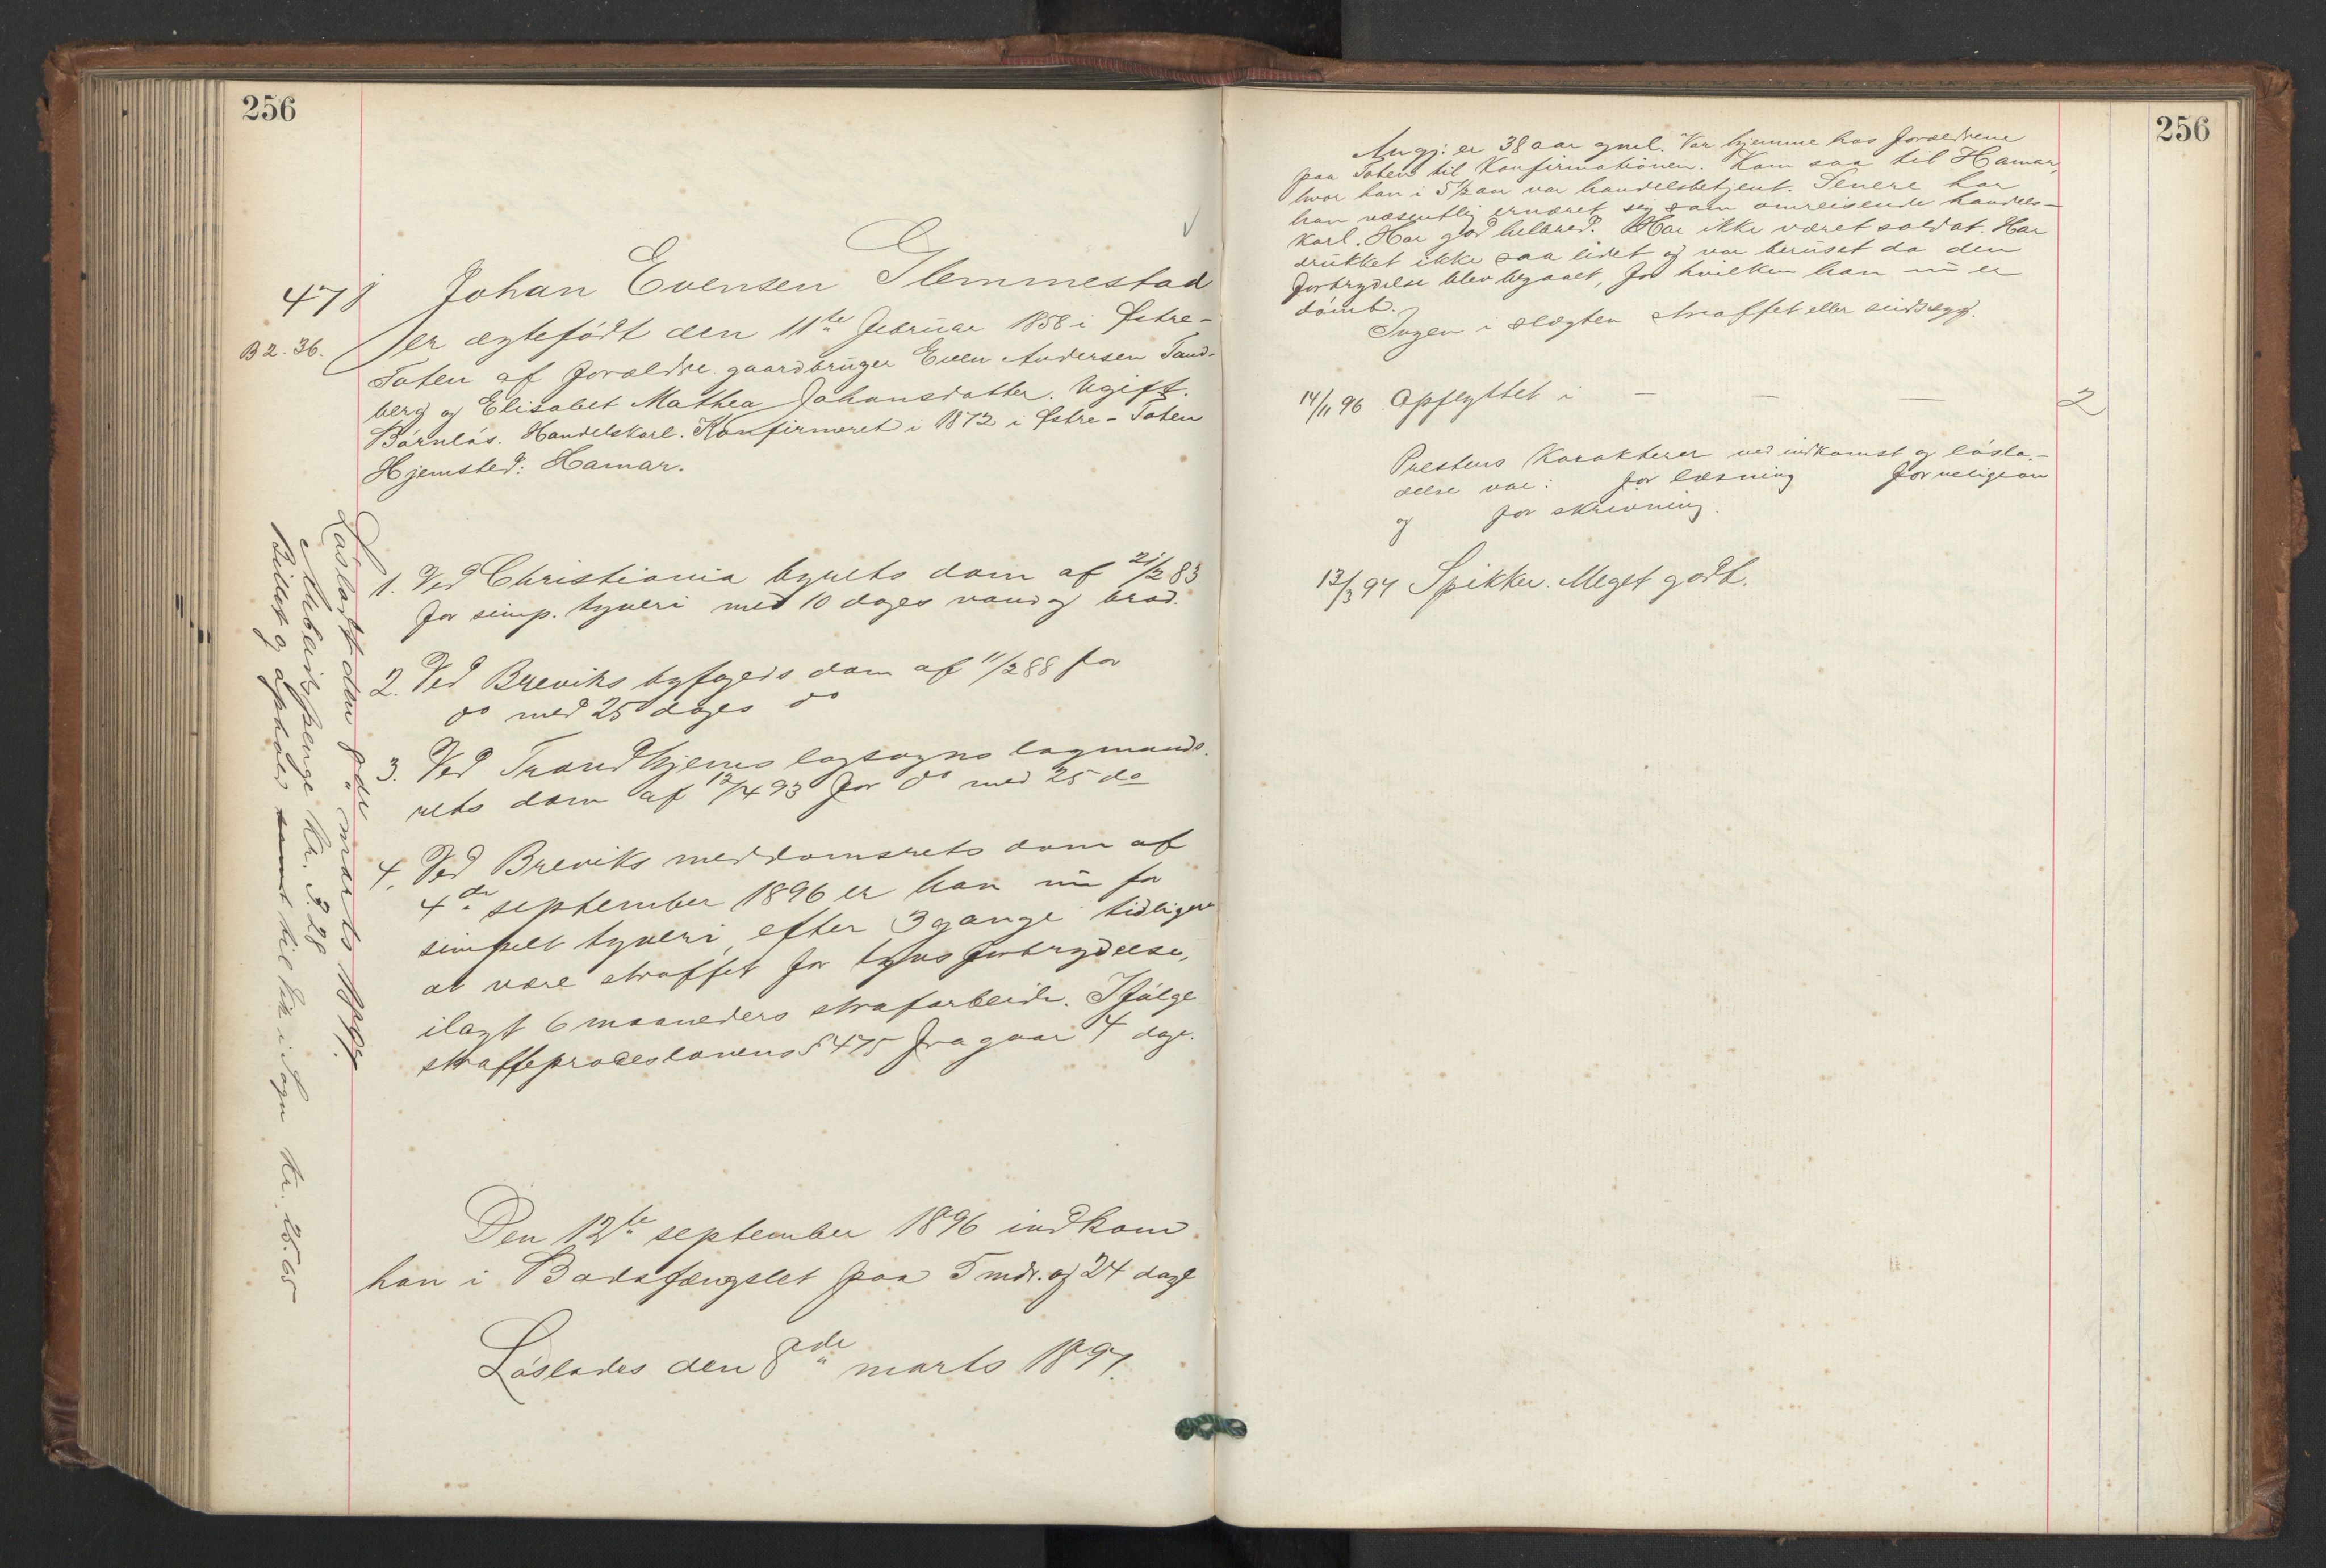 256
478
B 2. 36.
Johan Evensen Glemmestad
er ægtefødt den 11te februar 1858 i Østre-
Toten af forældre gaardbruger Even Andersen Tand-
berg og Elisabet Mathea Johansdatter. Ugift.
Barnløs. Handelskarl. Konfirmeret i 1872 i Østre-Toten
Hjemsted: Hamar.
1. Ved Christiania byrets dom af 21/2 83
for simp. tyveri med 10 dages vand og brød.
2. Ved Breviks byfogeds dom af 11/2 88 for
do med 25 dages do
3. Ved Trondhjems lagsogns lagmands-
rets dom af 12/4 93 for do med 25 do
4. Ved Breviks meddomsrets dom af
4de september 1896 er han nu for
simpelt tyveri, efter 3 gange tidligere
at være straffet for tyvsforbrydelse,
ilagt 6 maaneders strafarbeide. Ifølge
straffeproceslovens § 475 fragaar 4 dage.
Den 12te september 1896 indkom
han i Bodsfængslet paa 5 mdr. og 24 dage
Løslades den 8de marts 1897.
Løsladt den 8de marts 1897.
Arbeidspenge Kr. 3.28
Billet og ophold samt til Vik i Sogn Kr. 25.65
256
Angj. er 38 aar gml. Var hjemme hos forældrene
paa Toten til Konfirmationen. Kom saa til Hamar,
hvor han i 5 1/2 aar var handelsbetjent. Senere har
han væsentlig ernæret sig som omreisende handels-
karl. Har god helbred. Har ikke været soldat. Har
drukket ikke saa lidet og var beruset da den
forbrydelse blev begaaet, for hvilken han nu er
dømt.
Ingen i slægten straffet eller sindssyg.
14/11 96 Opflyttet i — — — 2
Prestens Karakterer ved indkomst og løsla-
delse var: for læsning for religion
og for skrivning.
13/3 97 Spikker. Meget godt.